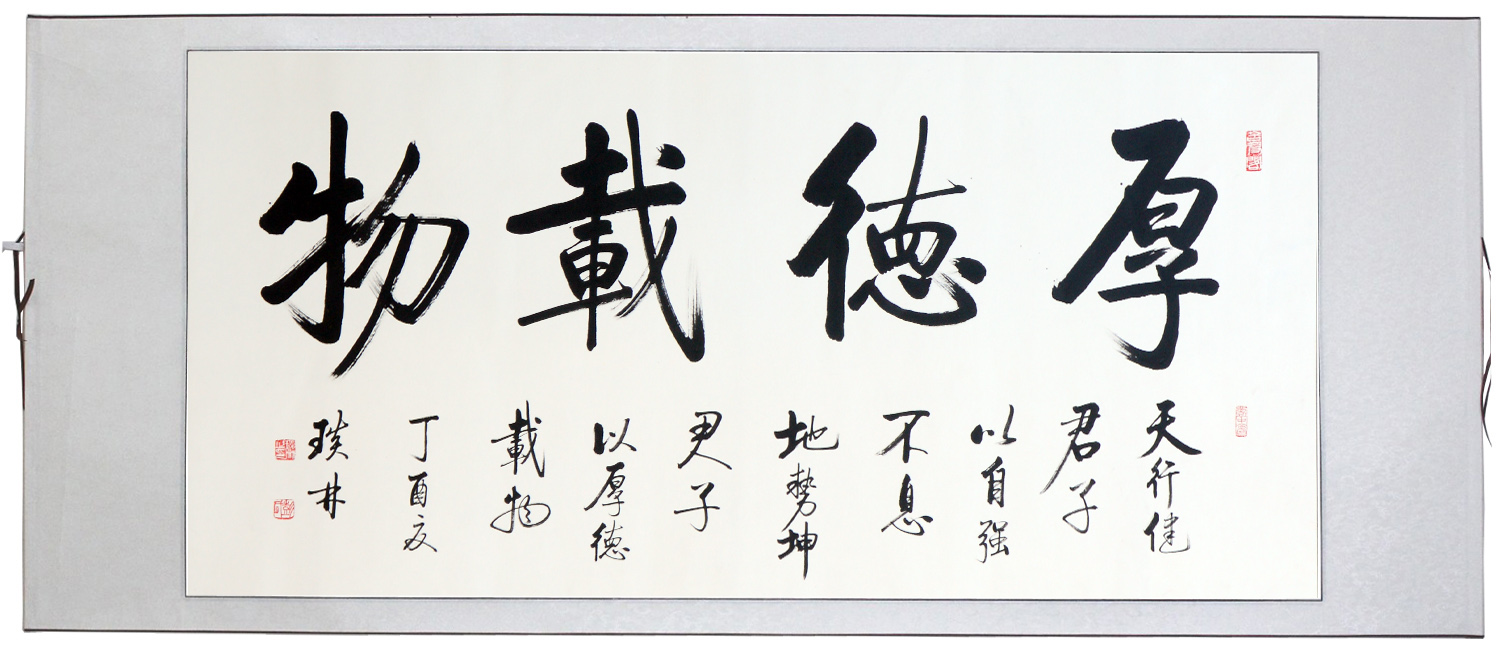 厚德載物
天行健
君子
以自强
不息
地勢坤
君子
以厚德
載物
丁酉夏
琰林